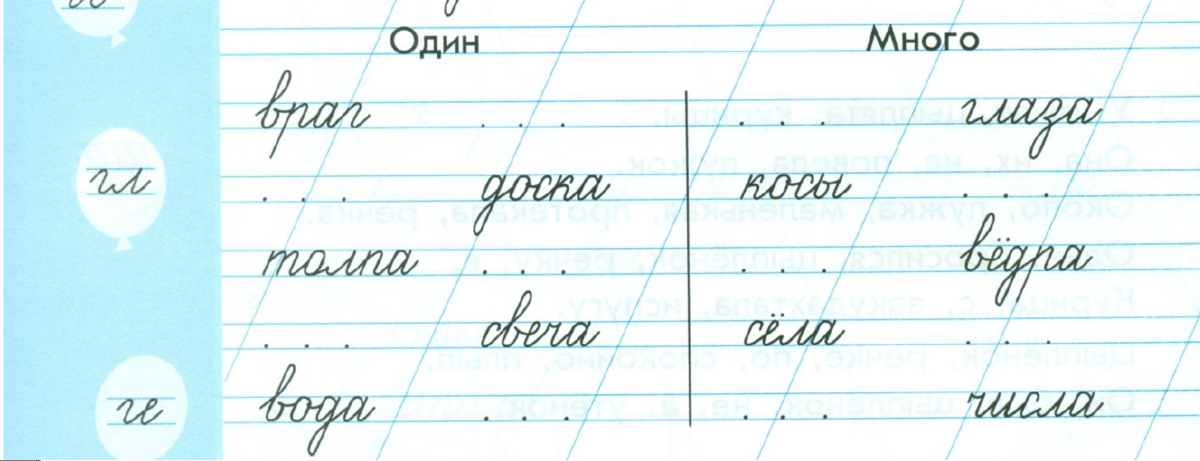 Один Много
враг . . . . . . глаза
гл . . . доска косы . . .
толпа . . . . . . вёдра
. . . свеча сёла . . .
ге вода . . . . . . числа